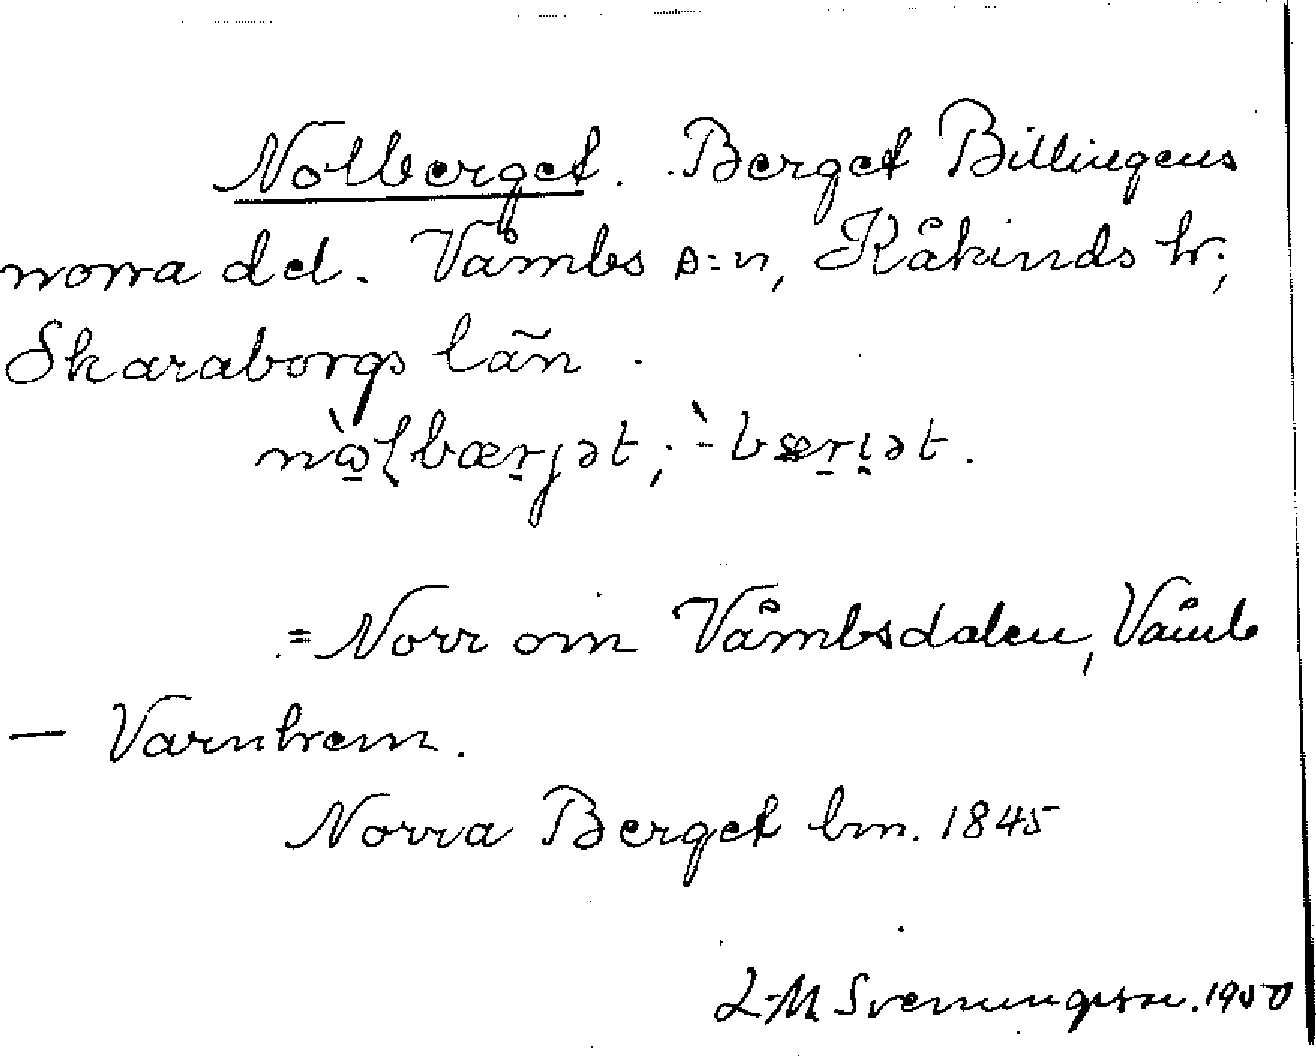 Nolberget. Berget Billingens
norra del. Våmbs s:n, Kåkinds hr,
Skaraborgs län.
nɷ̀ɭbærjət; -̀bæri̯ət.
= Norr om Våmbsdalen, Våmb
— Varnhem.
Norra Berget bm. 1845
L-M Svenungsson. 1950